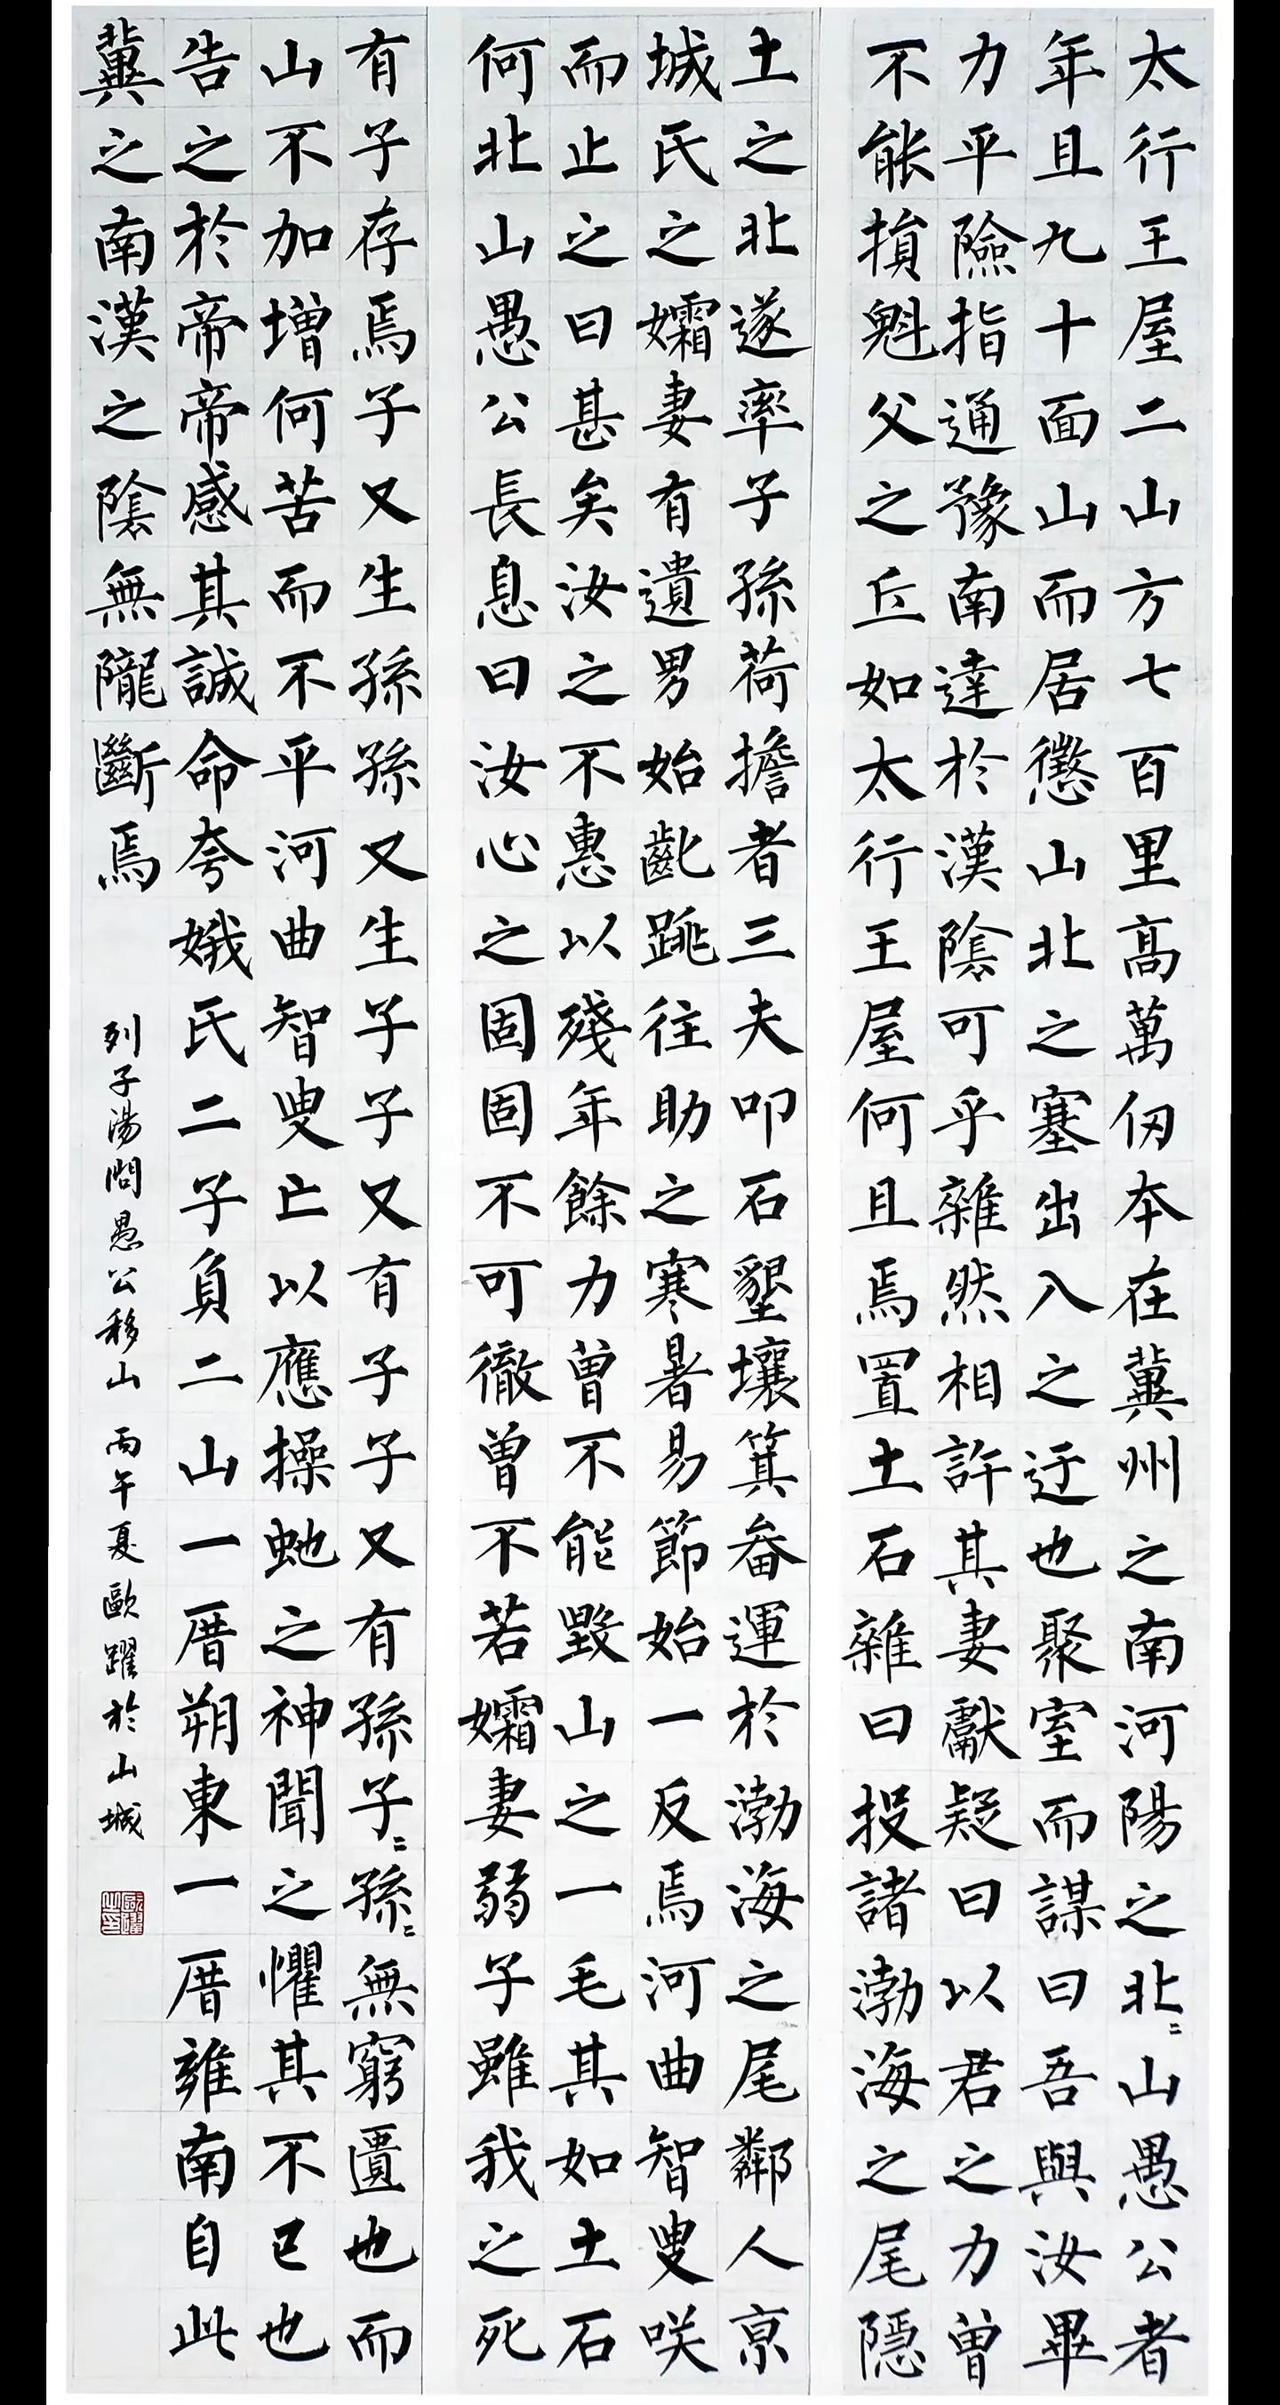 太行王屋二山方七百里髙萬仞本在冀州之南河陽之北〻山愚公者
年且九十面山而居懲山北之塞出入之迂也聚室而謀曰吾與汝畢
力平險指通豫南達於漢陰可乎雜然相許其妻獻疑曰以君之力曾
不能損魁父之丘如太行王屋何且焉置土石雜曰投諸渤海之尾隱
土之北遂率子孫荷擔者三夫叩石墾壤箕畚運於渤海之尾鄰人亰
城氏之孀妻有遺男始齔跳往助之寒暑易節始一反焉河曲智叟咲
而止之曰甚矣汝之不惠以殘年餘力曾不能毀山之一毛其如土石
何北山愚公長息曰汝心之固固不可徹曾不若孀妻弱子雖我之死
有子存焉子又生孫孫又生子子又有子子又有孫子〻孫〻無窮匱也而
山不加增何苦而不平河曲智叟亡以應操虵之神聞之懼其不已也
告之於帝帝感其誠命夸娥氏二子負二山一厝朔東一厝雍南自此
冀之南漢之陰無隴斷焉
列子湯問愚公移山 丙午夏歐躍於山城
歐躍之印